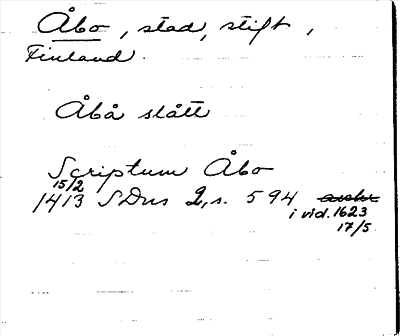 Åbo, stad, stift,
Finland.
Åbå slått
Scriptum Åbo
15/2
1413 SDns 2, s. 594 avskr
i vid. 1623
17/5